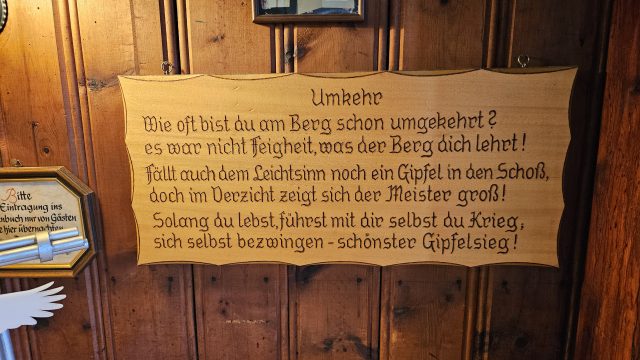 Umkehr
Wie oft bist du am Berg schon umgekehrt?
es war nicht Feigheit, was der Berg dich lehrt!
Fällt auch dem Leichtsinn noch ein Gipfel in den Schoß,
doch im Verzicht zeigt sich der Meister groß!
Solang du lebst, führst mit dir selbst du Krieg;
sich selbst bezwingen - schönster Gipfelsieg!
Bitte
Eintragung ins
nur von Gästen
hier übernachten